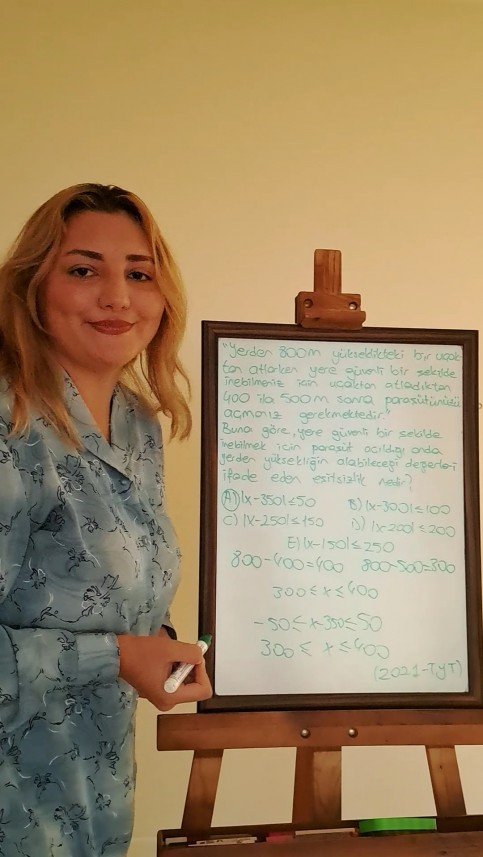 "Yerden 800m yükseklikteki bir uçak-
tan atlarken yere güvenli bir şekilde
inebilmeniz için uçaktan atladıktan
400 ila 500m sonra paraşütünüzü
açmanız gerekmektedir."
Buna göre, yere güvenli bir şekilde
inebilmek için paraşüt açıldığı anda
yerden yüksekliğin alabileceği değerleri
ifade eden eşitsizlik nedir?
A) |x-350|≤50 B) |x-300|≤100
C) |x-250|≤150 D) |x-200|≤200
E) |x-150|≤250
800-400=400 800-500=300
300≤x≤400
-50≤x-350≤50
300≤ x≤400
(2021-TYT)